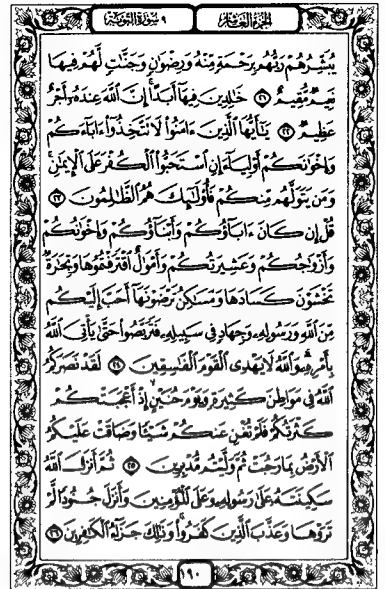 الجزء العاشر
٩ سورة التوبة
يُبَشِّرُهُمْ رَبُّهُم بِرَحْمَةٍ مِّنْهُ وَرِضْوَانٍ وَجَنَّاتٍ لَّهُمْ فِيهَا
نَعِيمٌ مُّقِيمٌ ٢١ خَالِدِينَ فِيهَا أَبَدًا إِنَّ اللَّهَ عِندَهُ أَجْرٌ
عَظِيمٌ ٢٢ يَا أَيُّهَا الَّذِينَ ءَامَنُوا لَا تَتَّخِذُوا ءَابَاءَكُمْ
وَإِخْوَانَكُمْ أَوْلِيَاءَ إِنِ اسْتَحَبُّوا الْكُفْرَ عَلَى الْإِيمَانِ
وَمَن يَتَوَلَّهُم مِّنكُمْ فَأُولَٰئِكَ هُمُ الظَّالِمُونَ ٢٣
قُلْ إِن كَانَ ءَابَاؤُكُمْ وَأَبْنَاؤُكُمْ وَإِخْوَانُكُمْ
وَأَزْوَاجُكُمْ وَعَشِيرَتُكُمْ وَأَمْوَالٌ اقْتَرَفْتُمُوهَا وَتِجَارَةٌ
تَخْشَوْنَ كَسَادَهَا وَمَسَاكِنُ تَرْضَوْنَهَا أَحَبَّ إِلَيْكُم
مِّنَ اللَّهِ وَرَسُولِهِ وَجِهَادٍ فِي سَبِيلِهِ فَتَرَبَّصُوا حَتَّىٰ يَأْتِيَ اللَّهُ
بِأَمْرِهِ وَاللَّهُ لَا يَهْدِي الْقَوْمَ الْفَاسِقِينَ ٢٤ لَقَدْ نَصَرَكُمُ
اللَّهُ فِي مَوَاطِنَ كَثِيرَةٍ وَيَوْمَ حُنَيْنٍ إِذْ أَعْجَبَتْكُمْ
كَثْرَتُكُمْ فَلَمْ تُغْنِ عَنكُمْ شَيْئًا وَضَاقَتْ عَلَيْكُمُ
الْأَرْضُ بِمَا رَحُبَتْ ثُمَّ وَلَّيْتُم مُّدْبِرِينَ ٢٥ ثُمَّ أَنزَلَ اللَّهُ
سَكِينَتَهُ عَلَىٰ رَسُولِهِ وَعَلَى الْمُؤْمِنِينَ وَأَنزَلَ جُنُودًا لَّمْ
تَرَوْهَا وَعَذَّبَ الَّذِينَ كَفَرُوا وَذَٰلِكَ جَزَاءُ الْكَافِرِينَ ٢٦
١٩٠